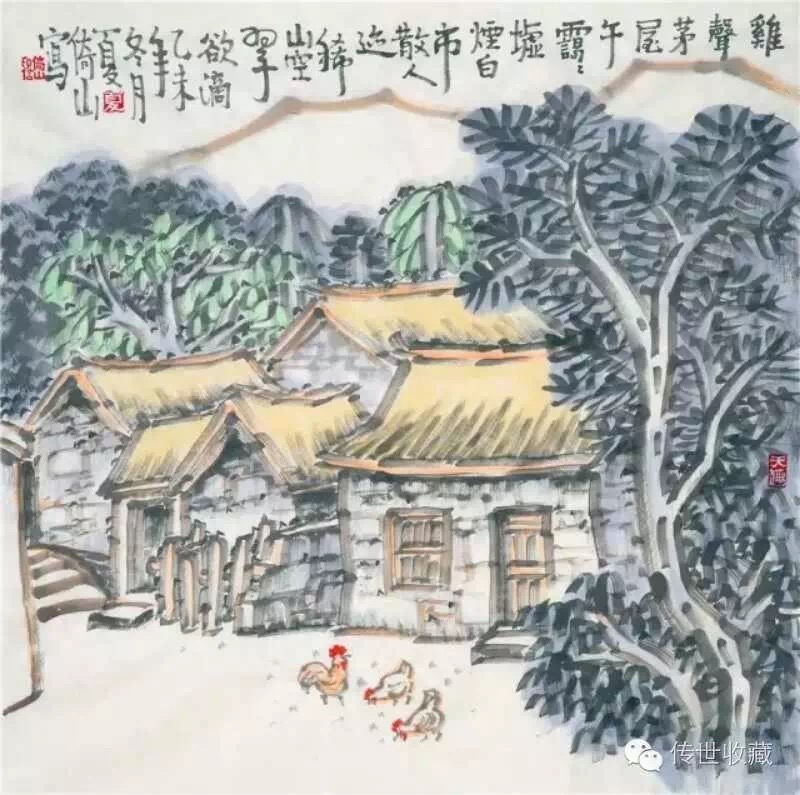 雞
聲
茅
屋
午
靄〻
墟
煙白
市
散人
迹
稀
山空
翠
欲滴
乙未年
冬月
夏
夏
倚山
寫
传世收藏